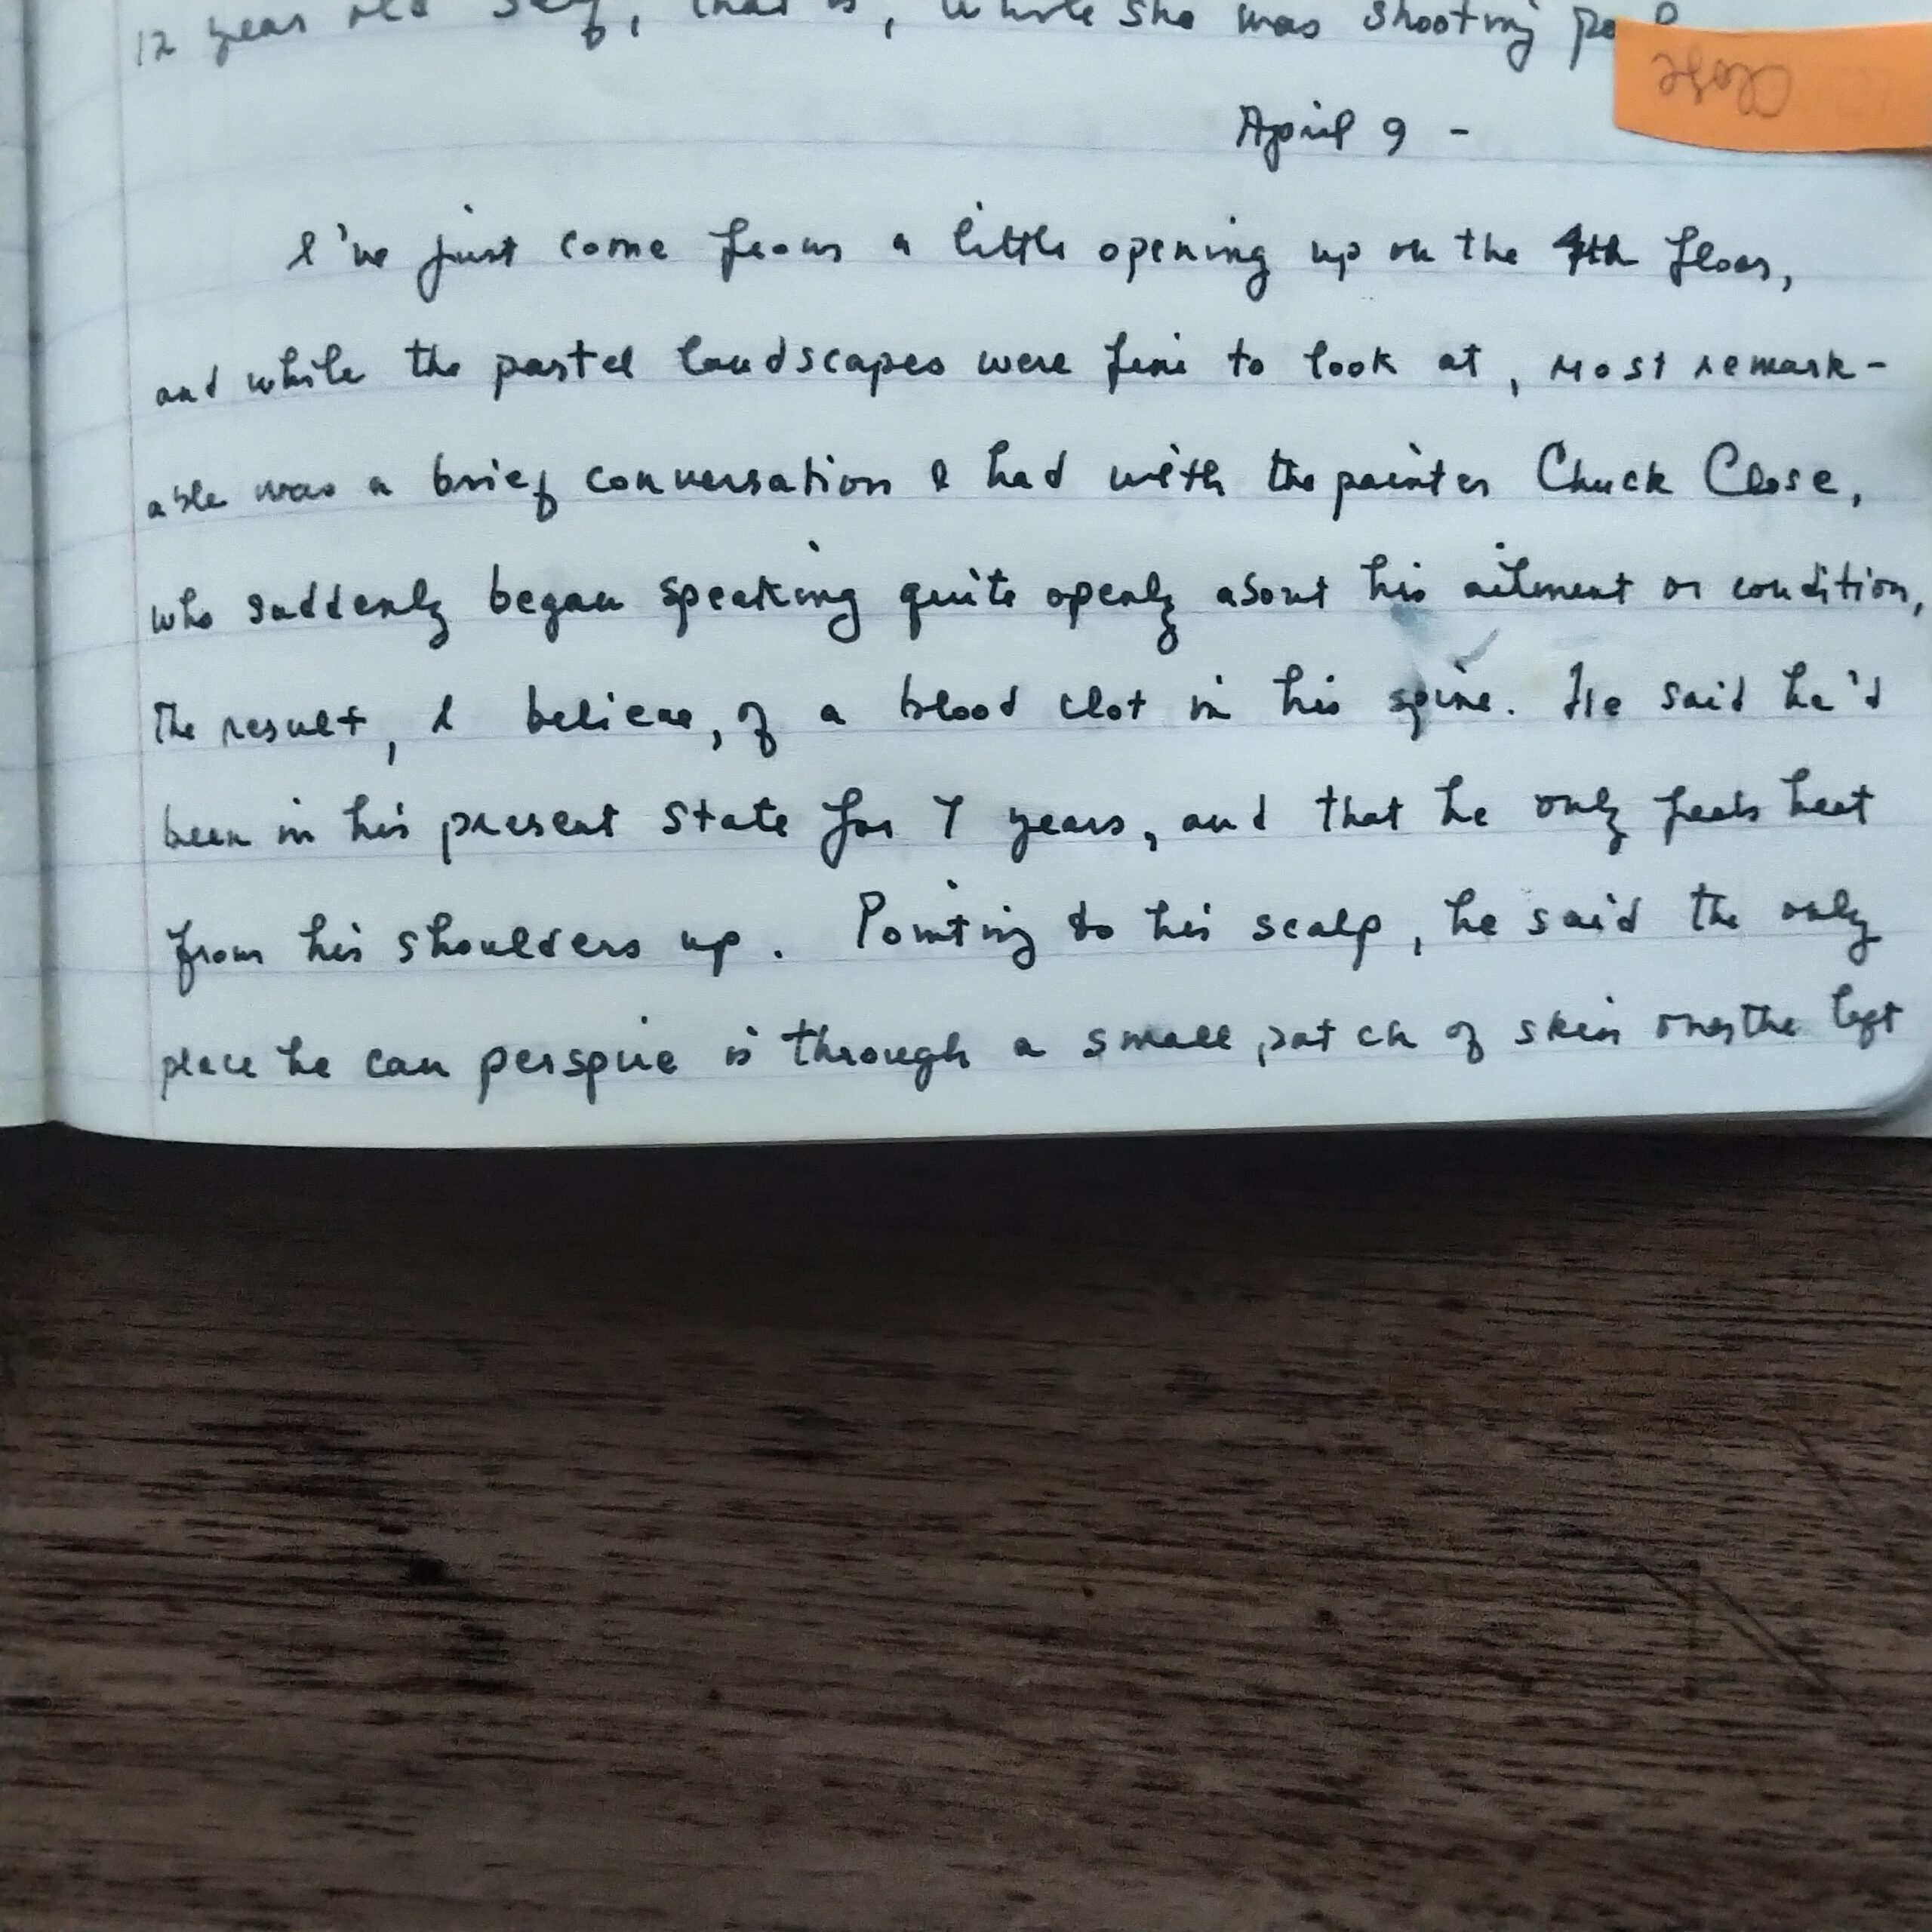 12 year old self, that is, while she was shooting
Close
April 9 -
I've just come from a little opening up on the 4th floor,
and while the pastel landscapes were fine to look at, most remark-
able was a brief conversation I had with the painter Chuck Close,
who suddenly began speaking quite openly about his ailment or condition,
the result, I believe, of a blood clot in his spine. He said he'd
been in his present state for 7 years, and that he only feels heat
from his shoulders up. Pointing to his scalp, he said the only
place he can perspire is through a small patch of skin over the left